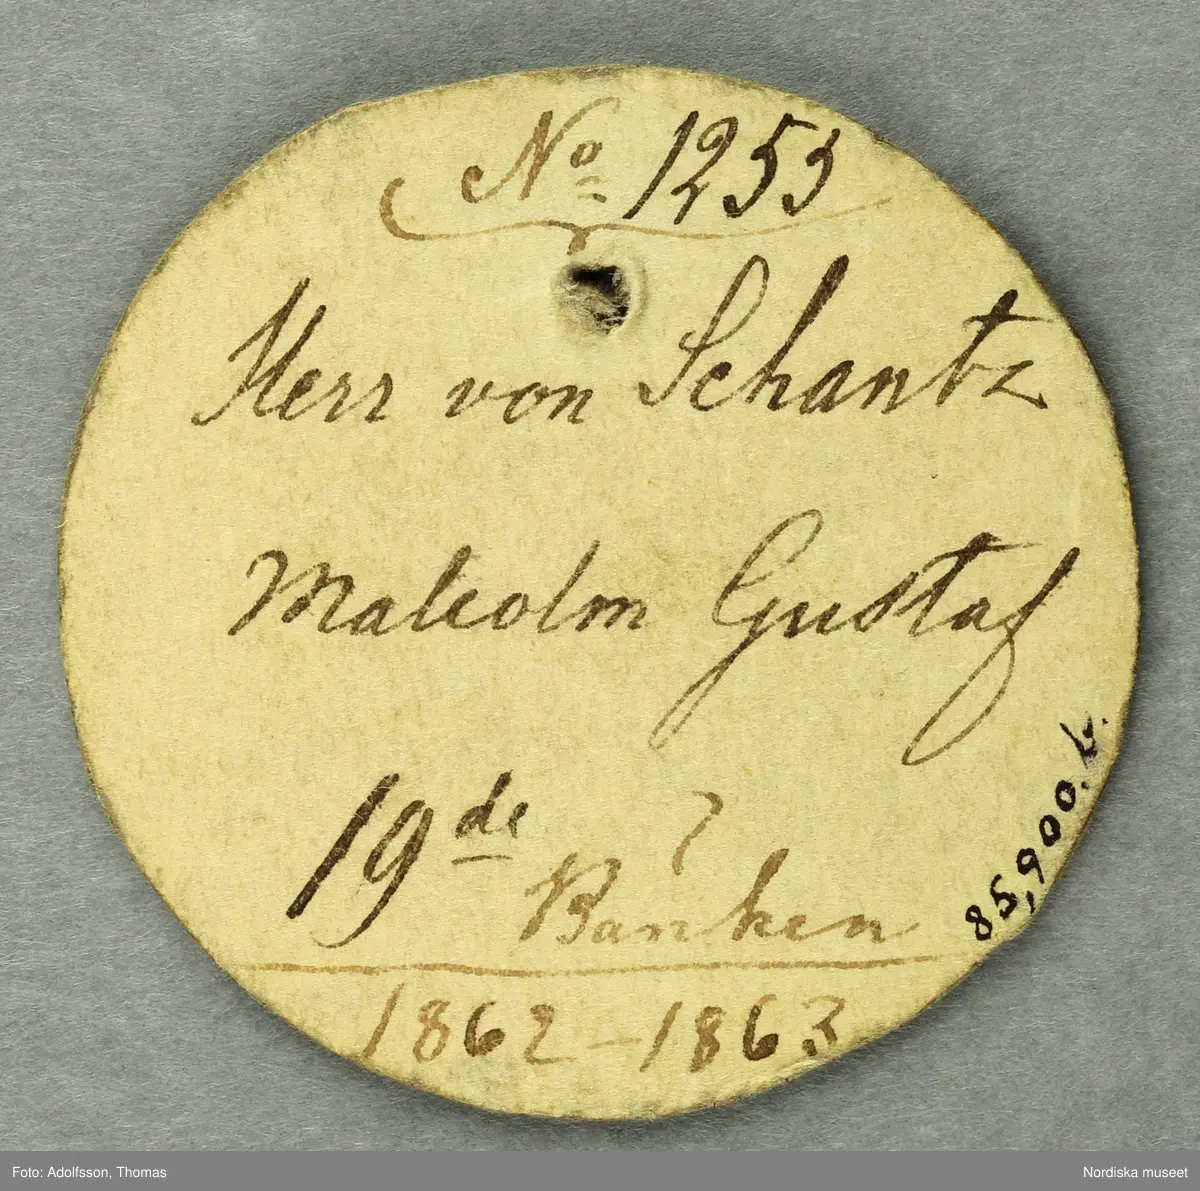 No 1255
Herr von Schantz
Malcolm Gustaf
19de
Banken
1862–1863
85,900.b.
Foto: Adolfsson, Thomas
Nordiska museet